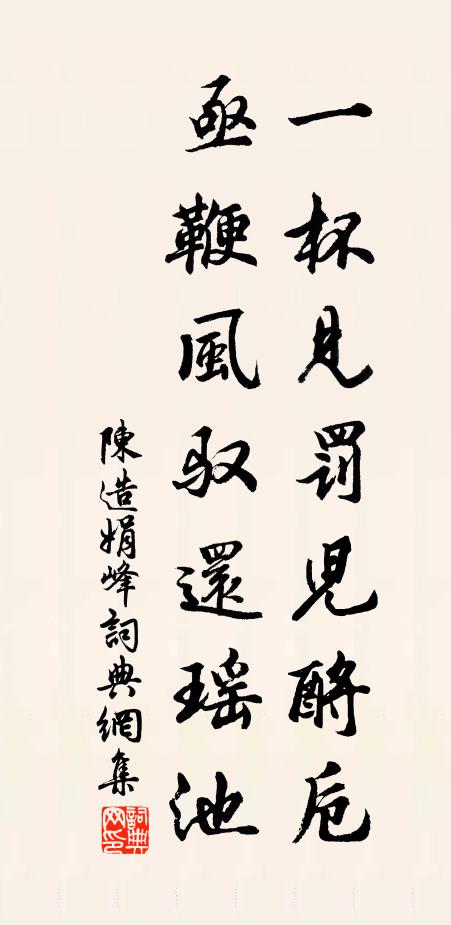 一杯見罰兕酹卮
亟鞭風馭還瑤池
陳造娟峰詞典網集
詞典
網印